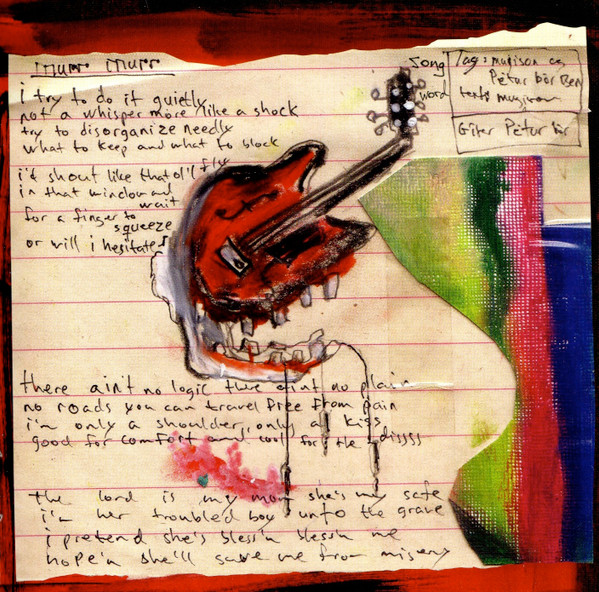 murr murr
song
word
Lag: mugison og
Pétur þór Ben
texti mugison
Gítar Pétur þór
i try to do it quietly
not a whisper more like a shock
try to disorganize needly
what to keep and what to block
i'd shout like that o'l fly
in that window and
wait
for a finger to
squeeze
or will i hesitate
there aint no logic there aint no plain
no roads you can travel free from pain
i'm only a shoulder, only a kiss
good for comfort and cool for the dissss
the lord is my mom she's my safe
i'm her troubled boy unto the grave
i pretend she's bless'n bless'n me
hope'n she'll save me from misery